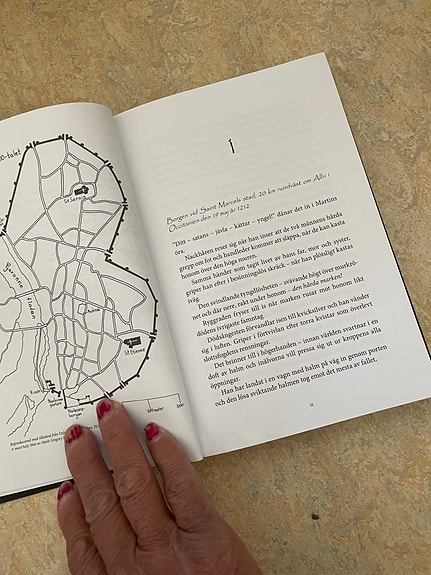 00-talet
St Sernin
Garonne
floden
St Etienne
500
1
Borgen vid Saint Marcels stad, 20 km nordväst om Albi i
Occitanien den 19 maj år 1212
"Ditt – satans – jävla – kättar – yngel!" dånar det in i Martins
öra.
Nackhåren reser sig när han inser att de två männens hårda
grepp om fot och handleder kommer att släppa, när de kan kasta
honom över den höga muren.
Samma händer som tagit livet av hans far, mor och syster,
griper han efter i besinningslös skräck – när han plötsligt kastas
iväg.
Den svindlande tyngdlösheten – svävande högt över murkrö-
net och där nere, rakt under honom – den hårda marken!
Ryggraden fryser till is när marken rusar mot honom likt
dödens ivrigaste famntag.
Dödsångesten förvandlar isen till kvicksilver och han vänder
sig i luften. Griper i förtvivlan efter torra kvistar som överlevt
slottsfogdens rensningar.
Det brinner till i högerhanden – innan världen svartnar i en
doft av halm och inälvorna vill pressa sig ut ur kroppens alla
öppningar.
Han har landat i en vagn med halm på väg in genom porten
och den lösa sviktande halmen tog emot det mesta av fallet.
11